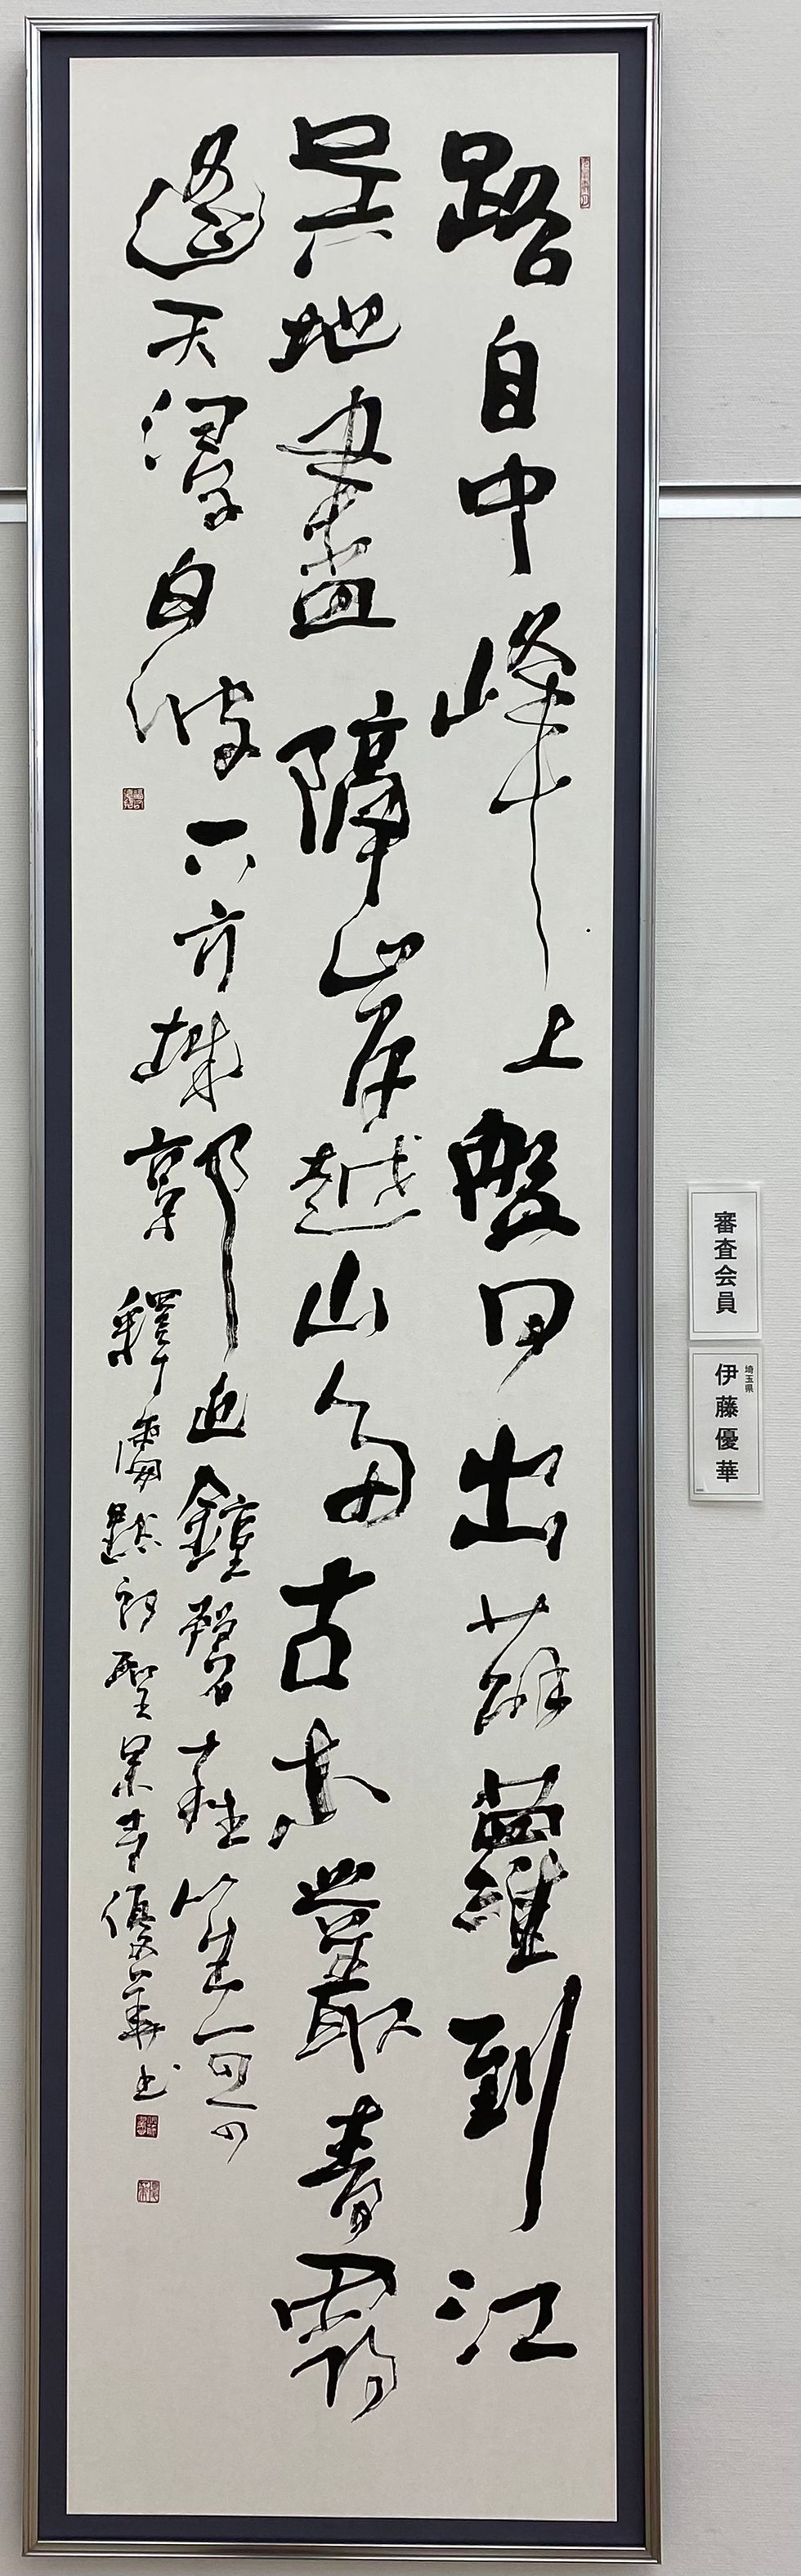 路自中峰上盤回出薜蘿到江
吳地盡隔岸越山多古木叢青靄
遙天浸白波下方城郭近鐘磬雜笙歌
釋處默詩聖果寺優華書
審査会員
埼玉県
伊藤優華